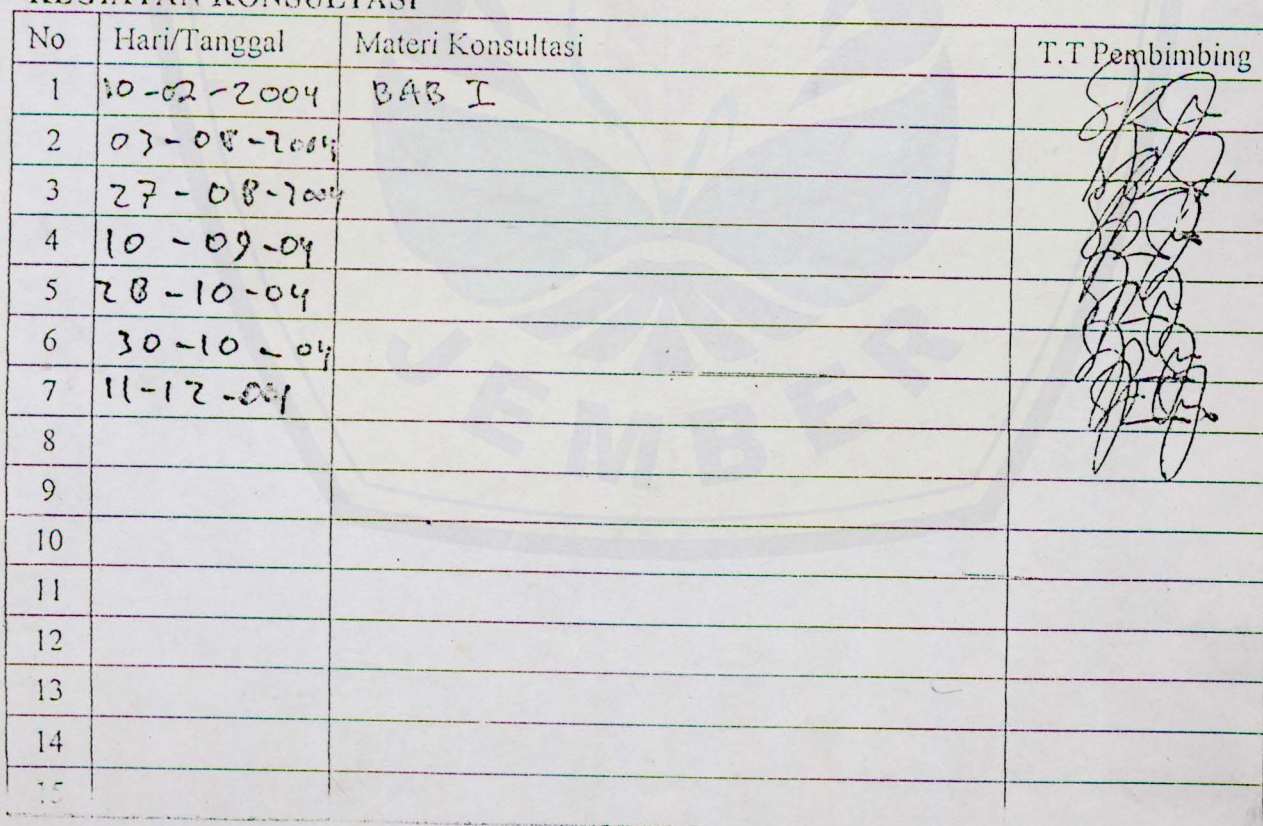 KEGIATAN KONSULTASI
No Hari/Tanggal Materi Konsultasi T.T Pembimbing
1 10-02-2004 BAB I
2 03-08-2004
3 27-08-2004
4 10-09-04
5 28-10-04
6 30-10-04
7 11-12-04
8
9
10
11
12
13
14
15
JEMBER